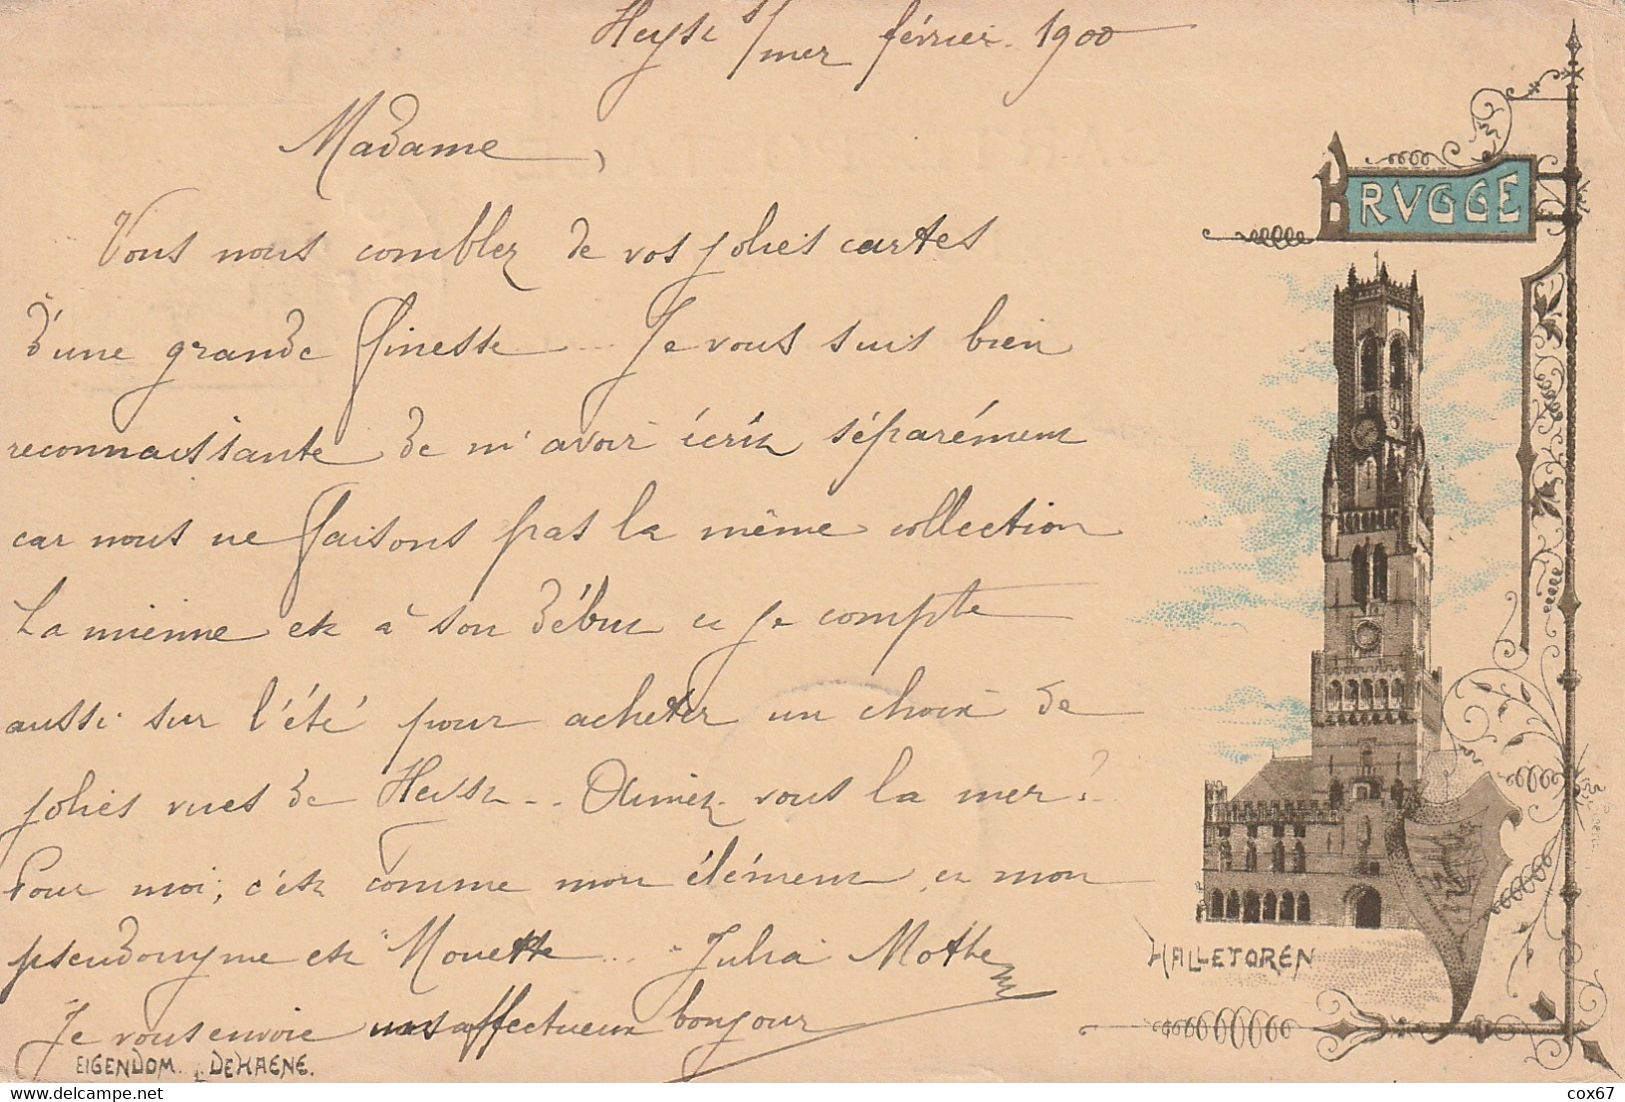 Heyst s/mer février. 1900
Madame,
Vous nous comblez de vos jolies cartes
d'une grande finesse... Je vous suis bien
reconnaissante de m'avoir écrit séparément
car nous ne faisons pas la même collection
La mienne est à son début et je compte
aussi sur l'été pour acheter un choix de
jolies vues de Heyst... Aimez-vous la mer?
Pour moi, c'est comme mon élément et mon
pseudonyme est "Mouette"... Julia Mothe
Je vous envoie affectueux bonjour
BRVGGE
HALLETOREN
EIGENDOM. DEHAENE.
cox67